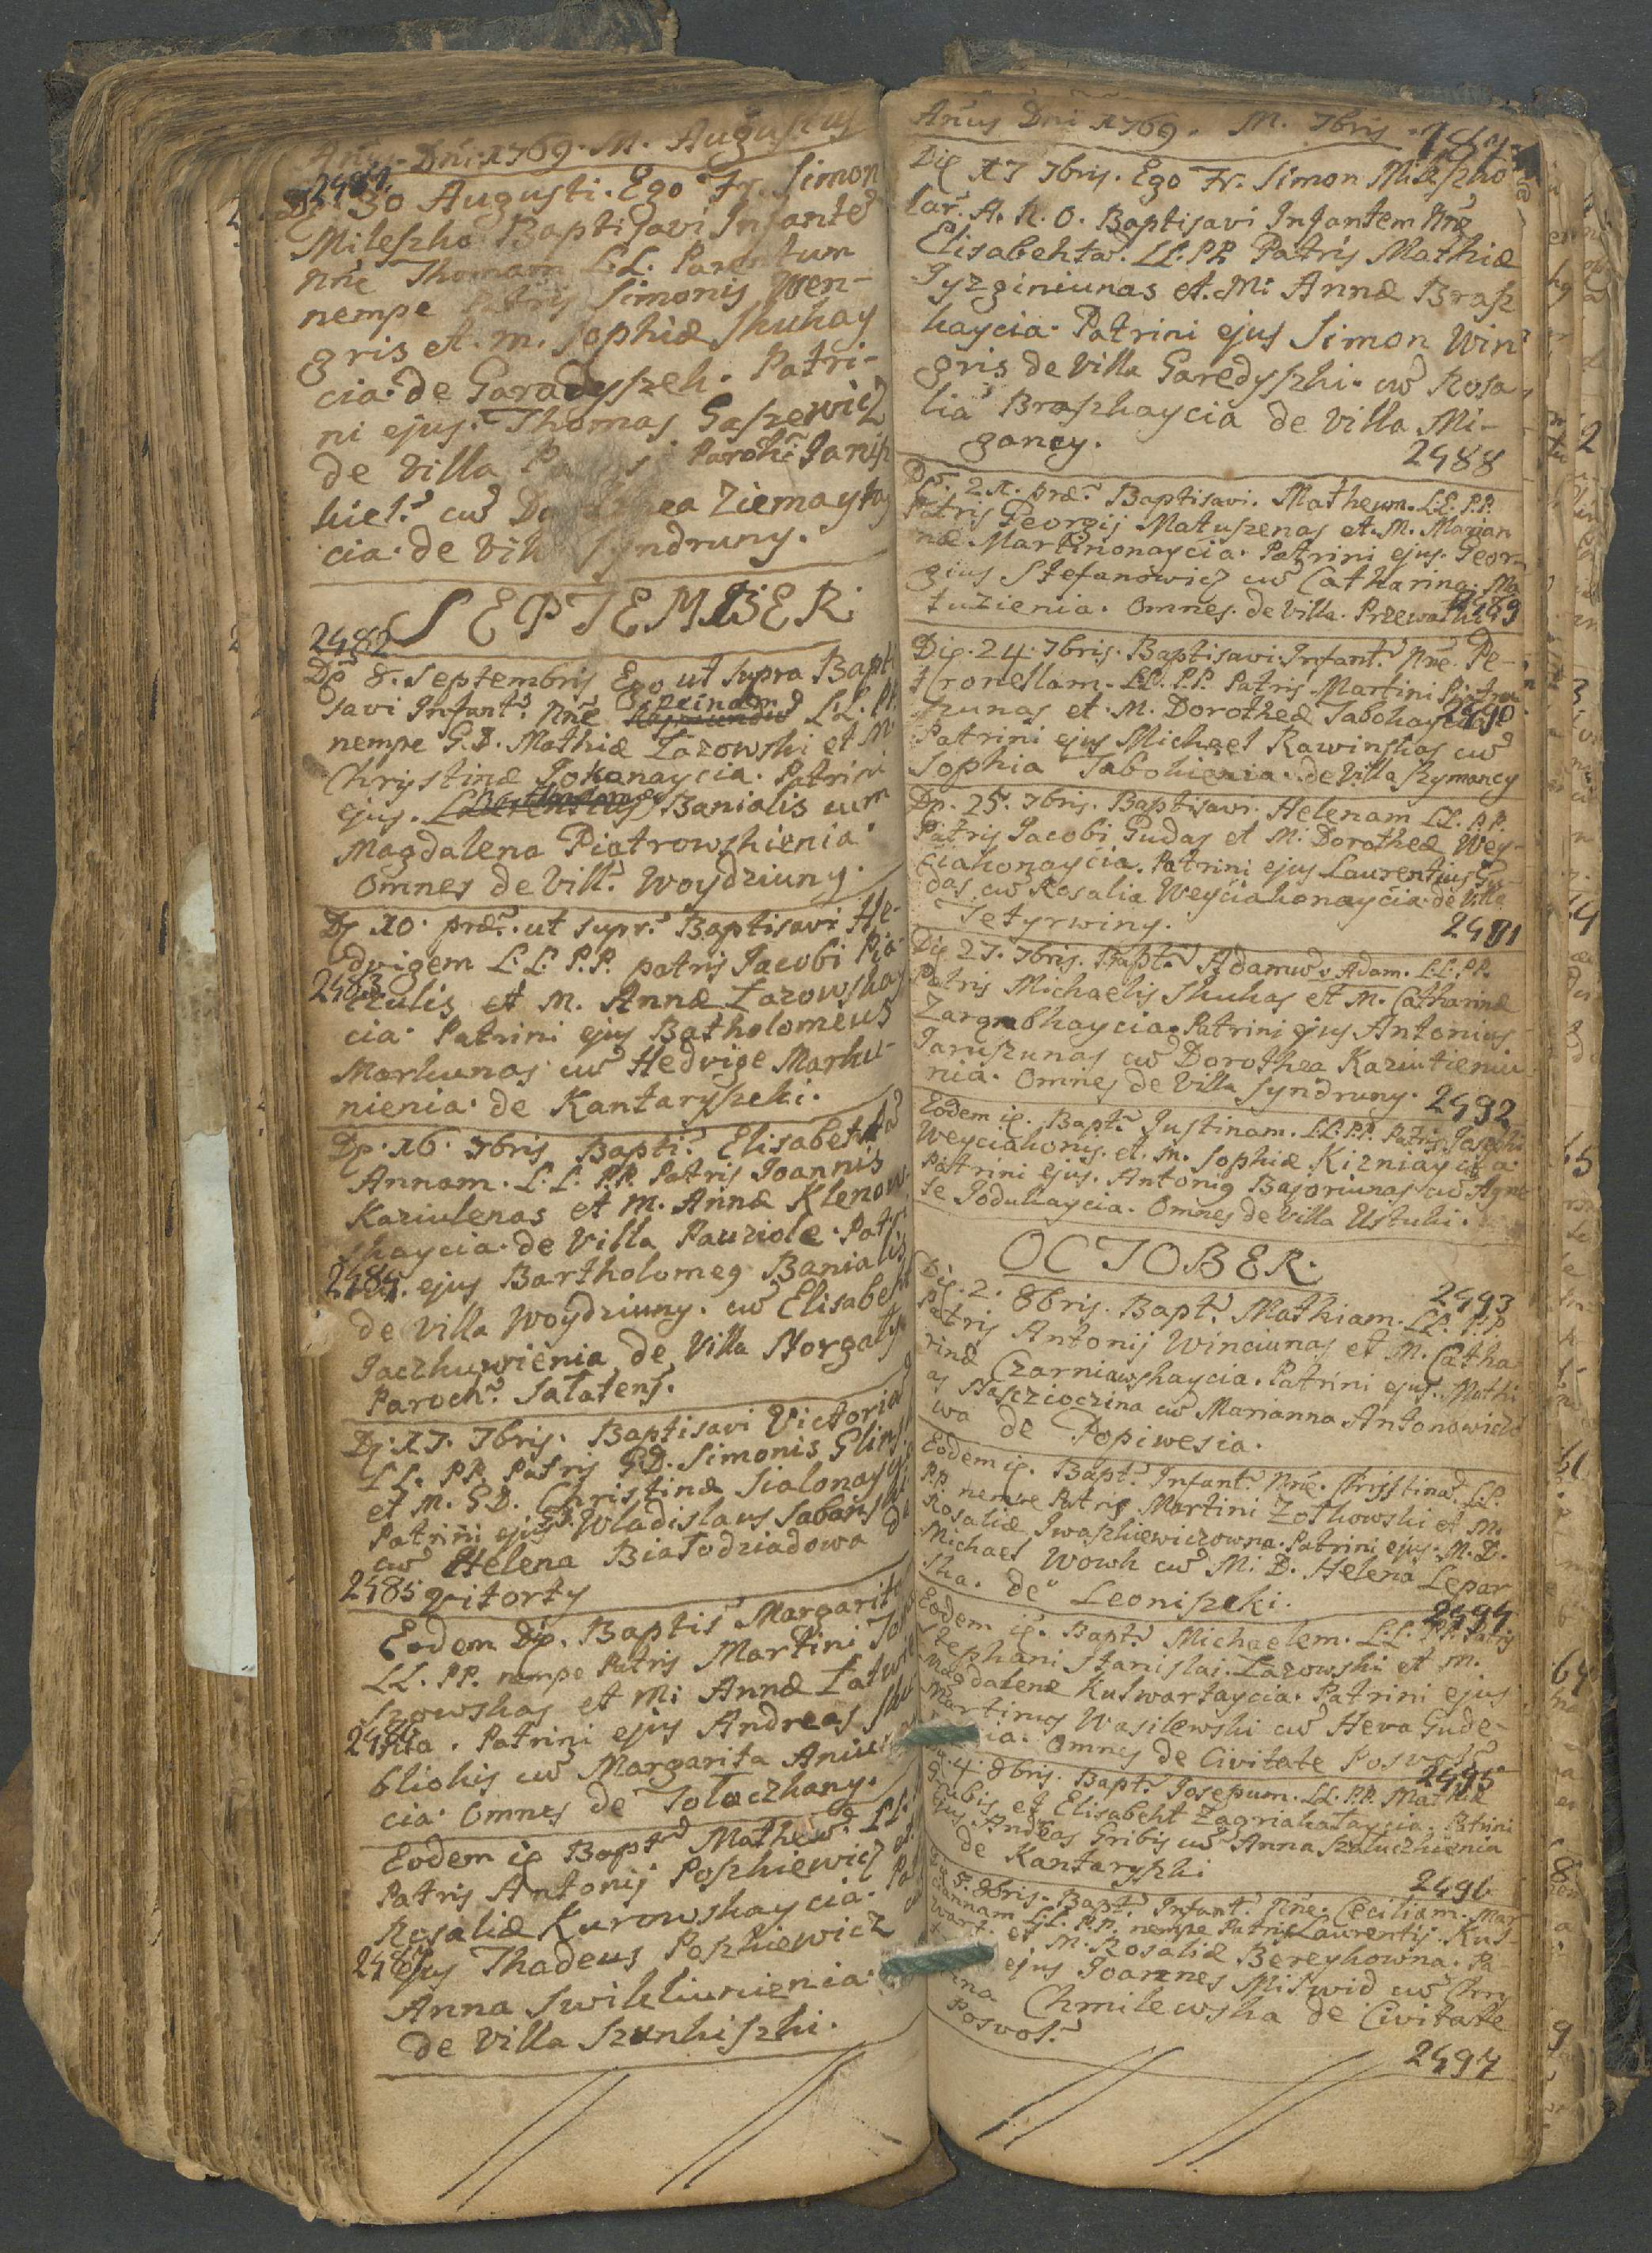 Anus Dni 1769. M. Augustus
2481
Di 30 Augusti. Ego Fr. Simon
Mileszko Baptisavi Infante
nne Thomam L.L. Parentum
nempe Patris Simonis Wen-
gris et. m. Sophiæ Skukay
cia. de Garadyszek. Patri-
ni ejus. Thomas Gaszewicz
de Villa Parohi Janisz
kiel. cu Dorothea Ziemayty
cia. de Vill Syndruny.
SEPTEMBER
2482
De 8. Septembris Ego ut supra Bapti
savi Infant. nne L.L. PP.
nempe G.D. Mathiæ Łazowski et M
Chrystinæ Jokanaycia. Patrini
ejus. Banialis cum
Magdalena Piatrowskienia.
Omnes de Vill. Woydziuny.
De 10. præ. ut supr. Baptisavi He-
dvigem L.L. P.P. patris Jacobi Pia-
2483
czulis et M. Annæ Łazowskay
cia. Patrini ejus Batholomeus
Markunas cu Hedvige Marku-
nienia. de Kantaryszki.
De. 16. 7bris Bapti. Elisabetha
Annam. L.L. P.P. Patris Joannis
Kaziulenas et M. Annæ Klenow
skaycia. de Villa Pauziole. Patri
2484
ejus Bartholomeg Banialis
de Villa Woydziuny. cu Elisabeht
Jaczkuwienia de Villa Norgaly
Paroch. Sałatens.
De. 17. 7bris. Baptisavi Victoria
L.L. PP. Patris G.D. Simonis Glins
et M. G.D. Christinæ Sialonay
Patrini ejus GD. Wladislaus Sabans
cu Helena Białodziadowa
2485
Eodem Die. Baptis Margarita
LL. PP. nempe Patris Martini
szowskas et M: Annæ
2486
Patrini ejus Andreas
bliokis cu Margarita
cia. Omnes de Tołoczkany.
Eodem ie Bapt Mathew. LL.
Patris Antonij Poszkiewicz et
Rosaliæ Kurowskaycia. Pa
2487
ejus Thadeus Poszkiewicz
Anna Swikliunienia.
de Villa Szunkiszki.
Anus Dni 1769. M. 7bris
Die 17 7bris. Ego Fr. Simon Mileszko
lar. A. R. O. Baptisavi Infantem nne
Elisabehta. LL. P.P. Patris Mathiæ
Tyzginiunas et. M: Annæ Brasz
kaycia. Patrini ejus Simon Win
gris de Villa Garedyszki. cu Rosa
lia Braszkaycia de Villa Mi-
gancy.
2488
De. 21. præ. Baptisavi. Matheum. L.L. P.P.
Patris Georgij Matuszenas et. M. Marian
næ. Martinonaycia. Patrini ejus. Geor
gius Stefanowicz cu Catharina. Ma
tuzienia. Omnes. de Villa. Przewałki
2489
Die. 24. 7bris. Baptisavi Infant. nne. Pe-
tronellam. LL. P.P. Patris Martini
szunas et. M. Dorotheæ Tabokaycia
2490
Patrini ejus Michael Rawinskas cu
Sophia Tabokienia. de Villa Szymancy
De. 25. 7bris. Baptisavi. Helenam LL. P.P.
Patris Jacobi Gudas et M. Dorotheæ Wey-
ciakonaycia. Patrini ejus Laurentius Gu-
das. cu Rosalia Weyciakonaycia. de Villa
Tetyrwiny.
2491
Die 27. 7bris. Bapt. Adamu v Adam. L.L. P.P.
Patris Michaelis Skukas et M. Catharinæ
Zargabkaycia. Patrini ejus Antonius
Januszunas cu Dorothea Kaziutieniu
nia. Omnes de Villa Syndruny.
2492
Eodem ie. Bapt. Justinam. L.L. P.P. Patris Josephi
Weyciakonis. et. M. Sophiæ Kizniaycia.
Patrini ejus. Antonig Bajoriunas cu Agne
te Jodukaycia. Omnes de Villa Ustuki.
OCTOBER.
2493
Die. 2. 8bris. Bapt. Mathiam. LL. P.P.
Patris Antonij Winciunas et M. Catha
rinæ Czarniawskaycia. Patrini ejus. Mathi
as Staszczioczina cu Marianna Antonowiczo
wa de Popiwesia.
Eodem ie. Bapt. Infant. nne. Christina. LL.
P.P. nempe Patris Martini Zołkowski et M.
Rosaliæ Iwaszkiewiczowna. Patrini ejus. M.D.
Michael Wowk cu M. D. Helena Lepar
ska. de Leoniszki.
2494
Eodem ie. Bapt. Michaelem. L.L. P.P. Patris
Stephani Stanislai. Łazowski et M.
Magdalenæ Kulwartaycia. Patrini ejus
Martinus Wasilewski cu Heva Gude-
nia. Omnes de Civitate Posvol
2495
4. 8bris. Bapt. Josepum. LL. P.P. Mathiæ
Gribis et Elisabeht Zagriakałaycia. Patrini
ejus Andreas Gribis cu Anna Szałuczkienia
de Kantaryszki
2496
5. 8bris. Bapt. Infant. nne. Ceciliam. Mar
iannam L.L. P.P. nempe Patris Laurentij. Kul-
wart. et M. Rosaliæ Bereykowna. Pa-
ejus Joannes Mitwid cu Chry
ina Chmilewska de Civitate
Posvol.
2497